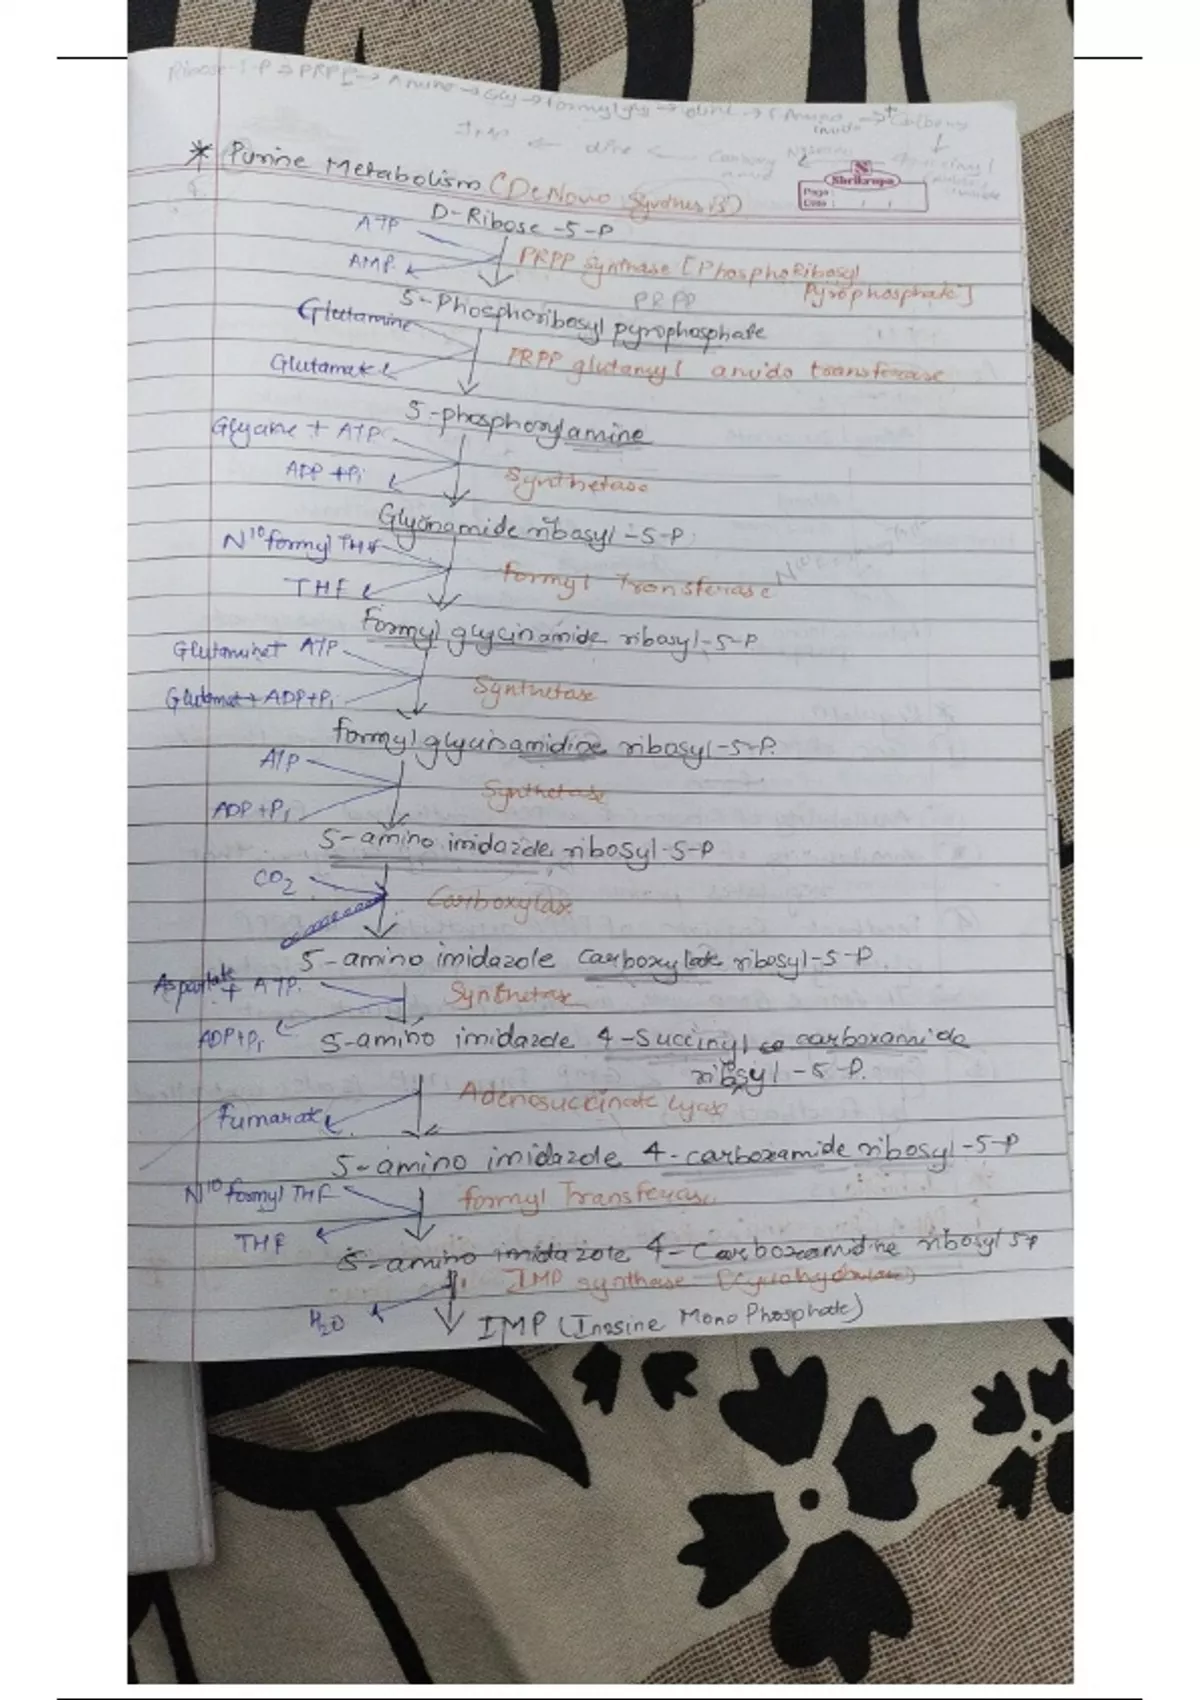 Ribose-5-P → PRPP → Amine → Gly → formylgly → dine → 5 Amino → Carboxy
IMP ← dine ← Carboxy
* Purine Metabolism (DeNovo Synthesis)
Shrikrupa
Page :
Date : / /
D-Ribose-5-P
ATP
PRPP synthase [PhosphoRibosyl
AMP
Pyrophosphate]
PRPP
5-Phosphoribosyl pyrophosphate
Glutamine
PRPP glutamyl amido transferase
Glutamate
5-phosphorylamine
Glycine + ATP
ADP + Pi
Synthetase
Glycinamide ribosyl-5-P
N10 formyl THF
formyl Transferase
THF
Formyl glycinamide ribosyl-5-P
Glutamine + ATP
Synthetase
Glutamate + ADP+Pi
formyl glycinamidine ribosyl-5-P.
ATP
Synthetase
ADP + Pi
5-amino imidazole ribosyl-5-P
CO2
Carboxylase
5-amino imidazole carboxylate ribosyl-5-P.
Aspartate + ATP.
Synthetase
ADP+Pi
5-amino imidazole 4-Succinyl carboxamide
ribosyl-5-P.
Adenosuccinate lyase
Fumarate
5-amino imidazole 4-carboxamide ribosyl-5-P
N10 formyl THF
formyl Transferase
THF
5-amino imidazole 4-Carboxamidine ribosyl 5P
IMP synthase (Cyclohydrolase)
H2O
IMP (Inosine MonoPhosphate)